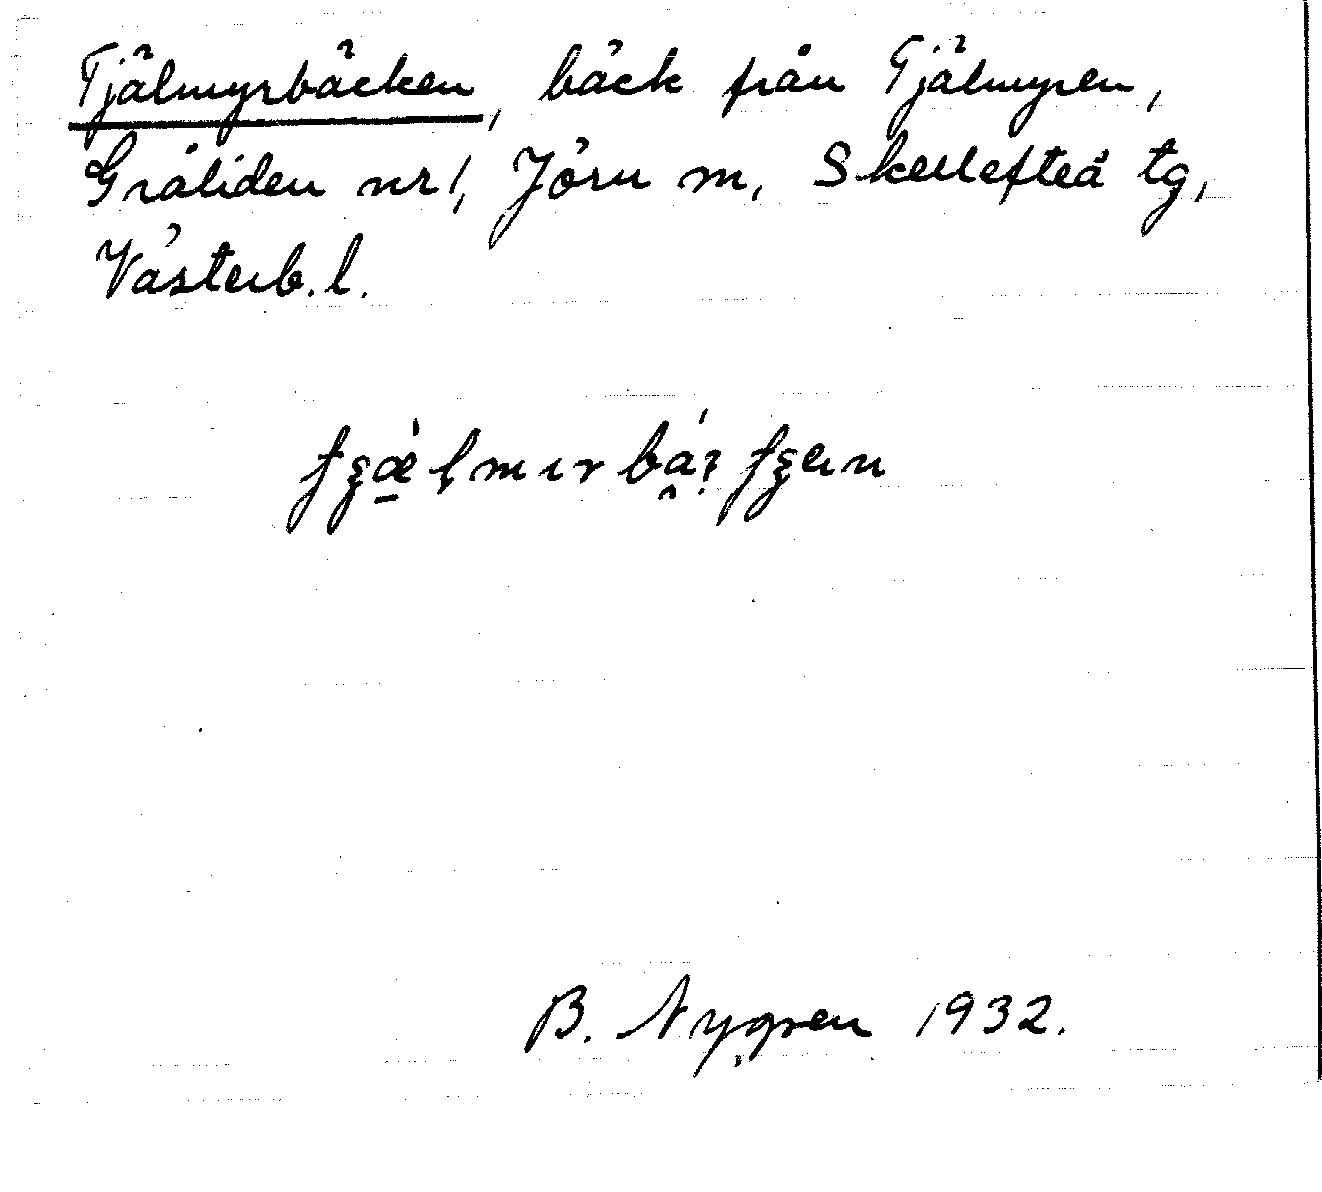 Tjälmyrbäcken, bäck från Tjälmyren,
Gråliden nr 1, Jörn m, Skellefteå tg,
Västerb. l.
B. Nygren 1932.